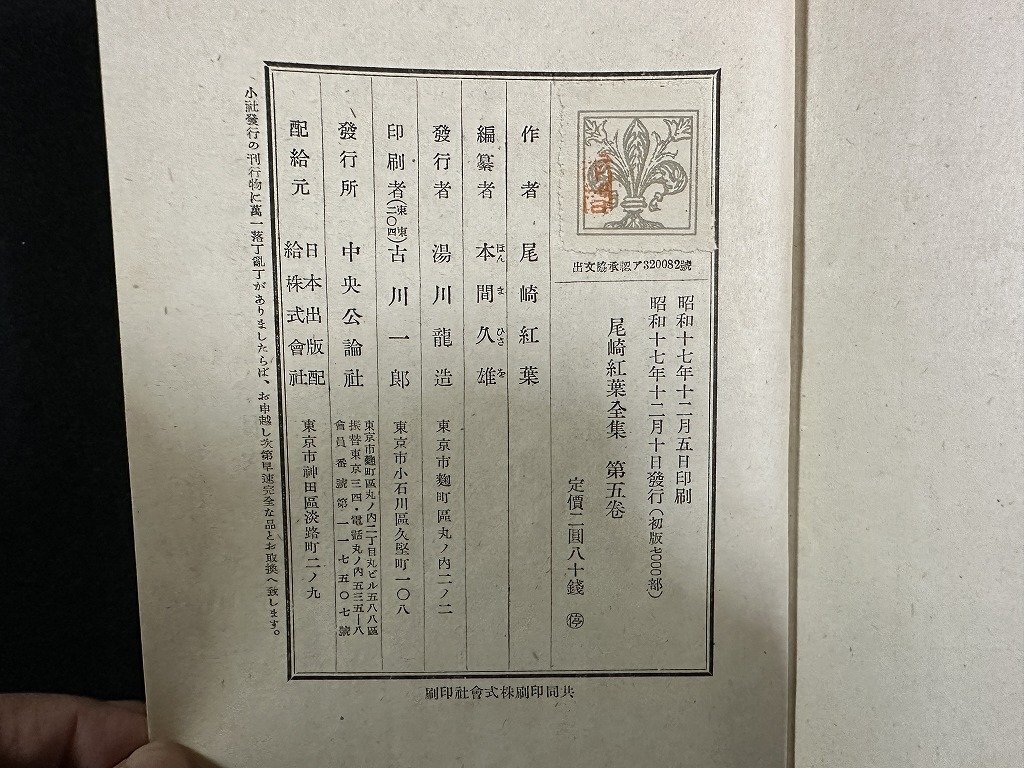 出文協承認ア320082號
昭和十七年十二月五日印刷
昭和十七年十二月十日發行(初版七〇〇〇部)
尾崎紅葉全集 第五卷
定價二圓八十錢 ㊡
作者 尾崎紅葉
編纂者 本間久雄
ほんまひさを
發行者 湯川龍造 東京市麴町區丸ノ內二ノ二
印刷者(東東二〇四) 古川一郎 東京市小石川區久堅町一〇八
發行所 中央公論社 東京市麴町區丸ノ內二丁目丸ビル五八八區
振替東京三四・電話丸ノ內五三五一八
會員番號第一一七五〇七號
配給元 日本出版配給株式會社 東京市神田區淡路町二ノ九
小社發行の刊行物に萬一落丁亂丁がありましたらば、お申越し次第早速完全な品とお取換へ致します。
共同印刷株式會社印刷